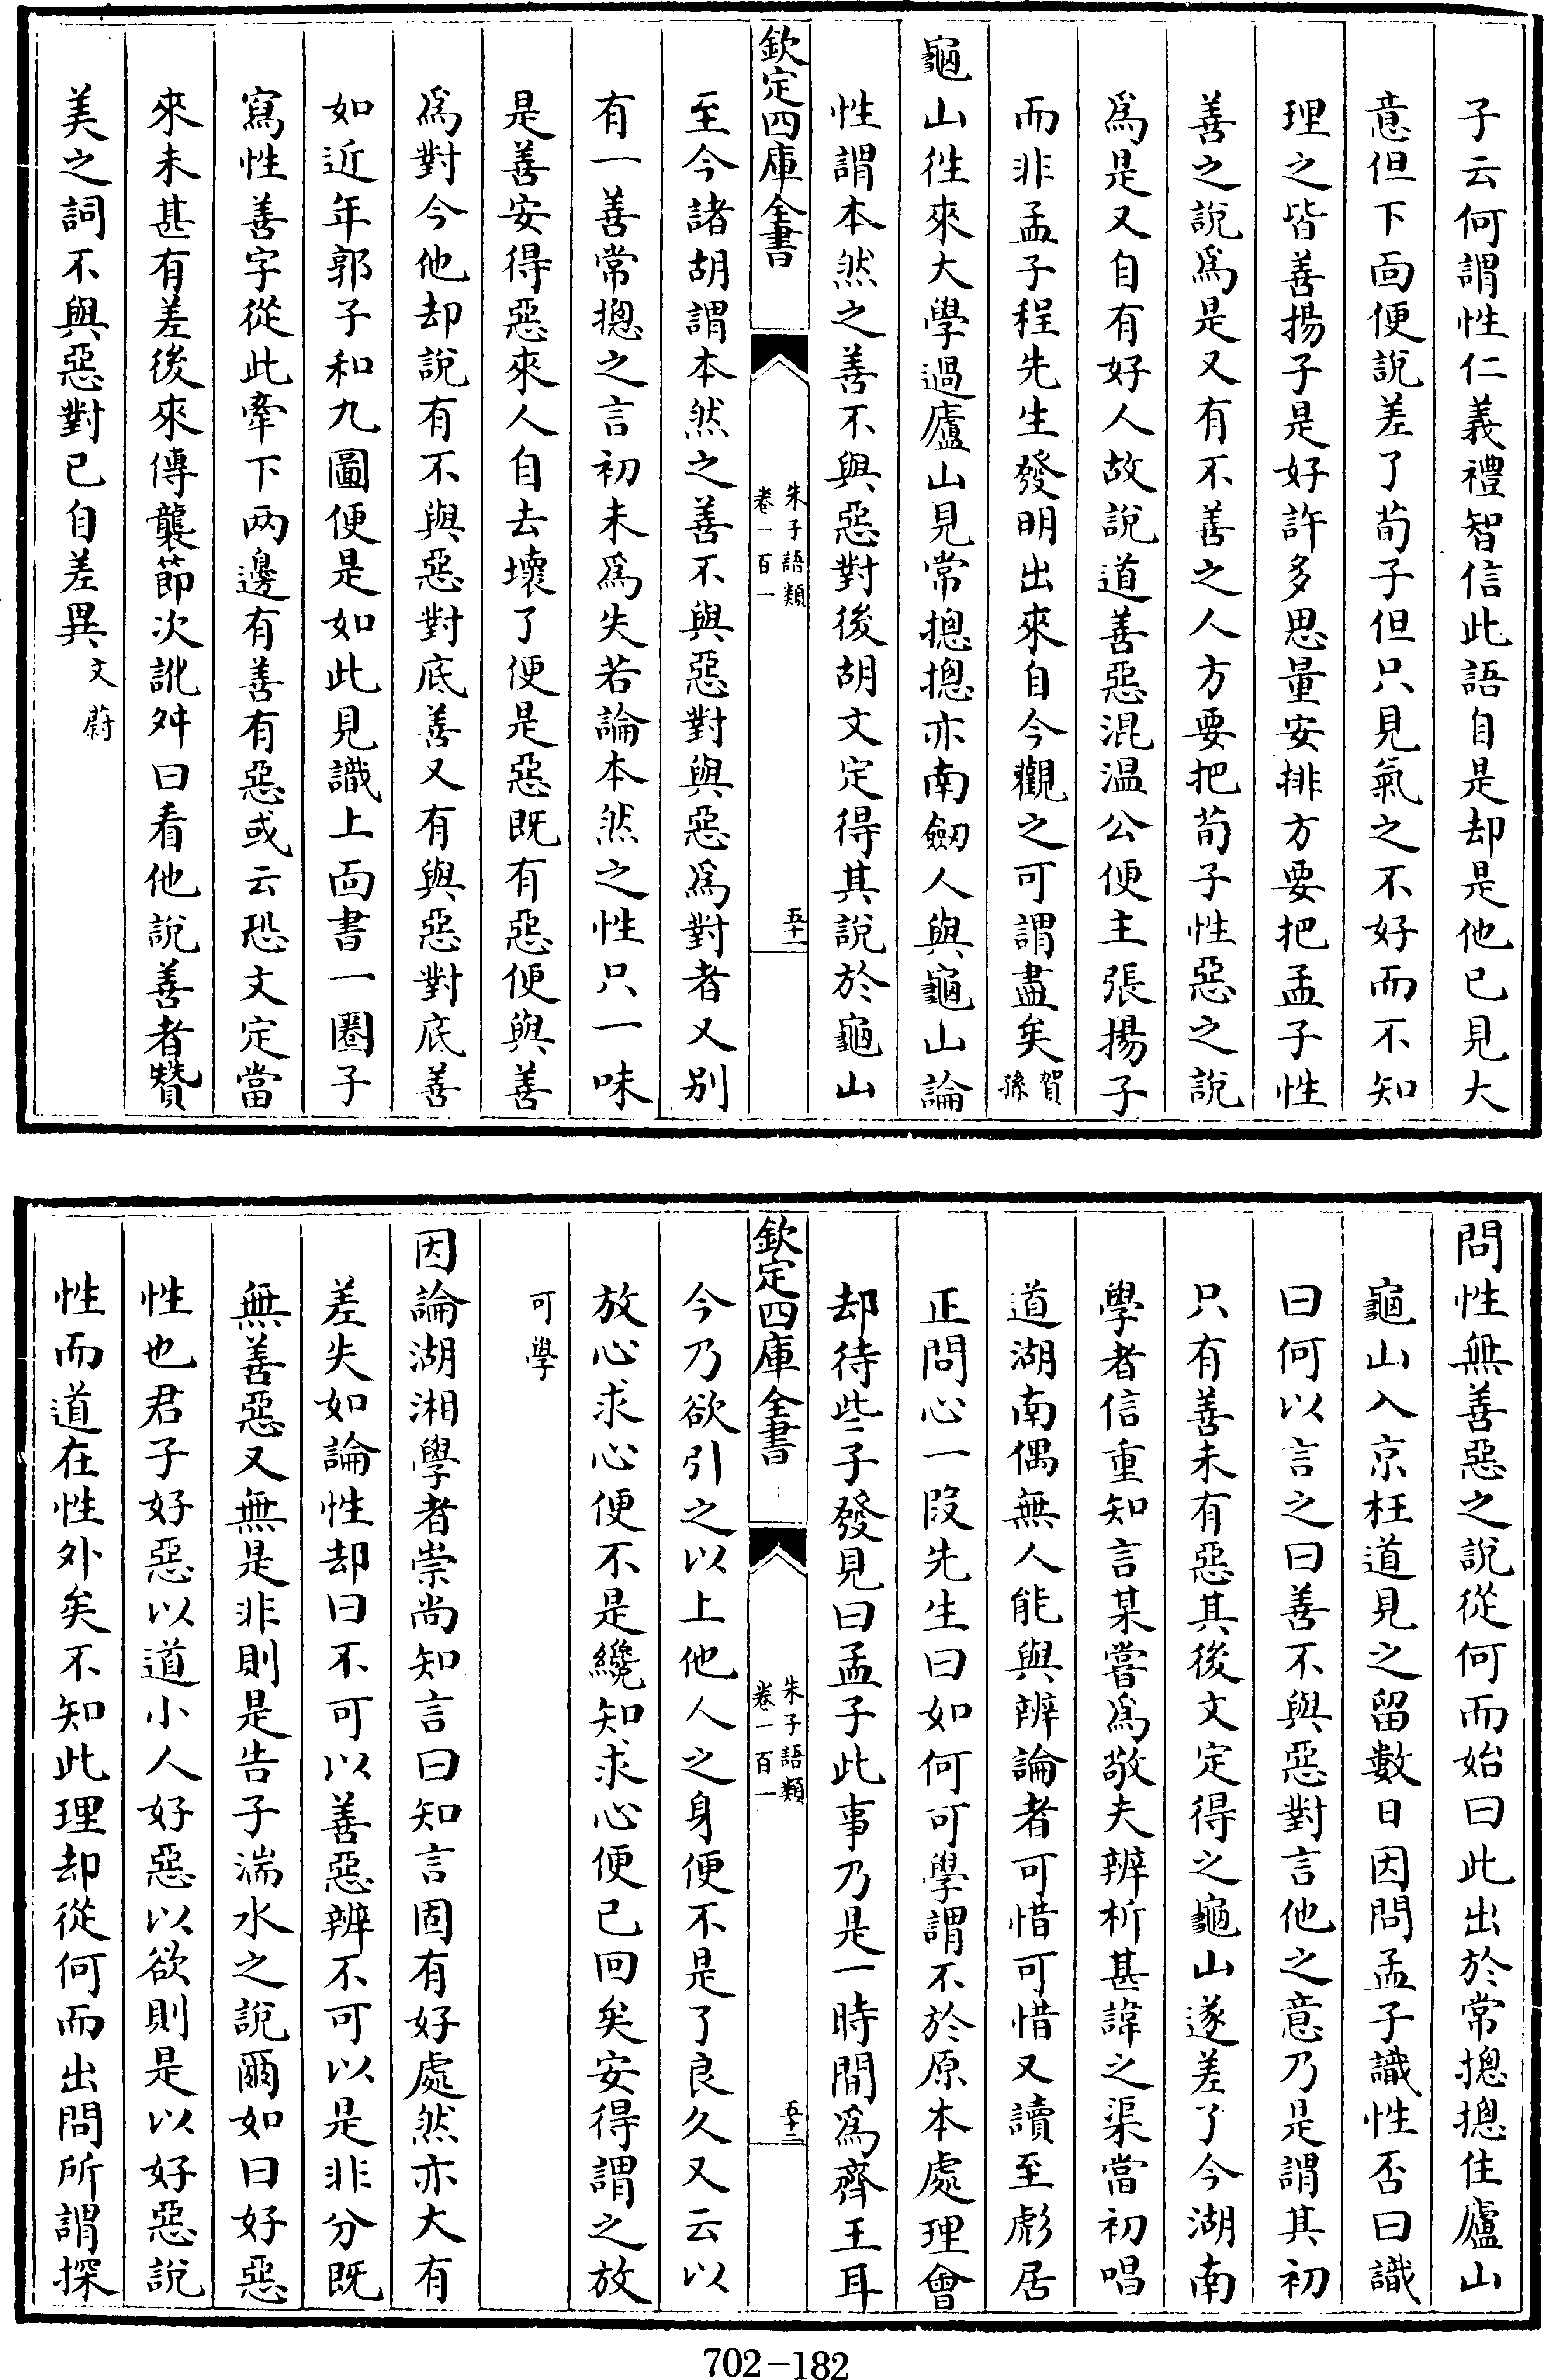 子云何謂性仁義禮智信此語自是却是他已見大
意但下面便說差了荀子但只見氣之不好而不知
理之皆善揚子是好許多思量安排方要把孟子性
善之說爲是又有不善之人方要把荀子性惡之說
爲是又自有好人故說道善惡混温公便主張揚子
而非孟子程先生發明出來自今觀之可謂盡矣賀
孫
龜山徃來大學過廬山見常摠摠亦南劒人與龜山論
性謂本然之善不與惡對後胡文定得其說於龜山
欽定四庫全書
朱子語類
卷一百一
五十一
至今諸胡謂本然之善不與惡對與惡爲對者又别
有一善常摠之言初未爲失若論本然之性只一味
是善安得惡來人自去壞了便是惡既有惡便與善
爲對今他却說有不與惡對底善又有與惡對底善
如近年郭子和九圖便是如此見識上面書一圈子
寫性善字從此牽下兩邊有善有惡或云恐文定當
來未甚有差後來傳襲節次訛舛曰看他說善者贊
美之詞不與惡對已自差異文蔚
問性無善惡之說從何而始曰此出於常摠摠住廬山
龜山入京枉道見之留數日因問孟子識性否曰識
曰何以言之曰善不與惡對言他之意乃是謂其初
只有善未有惡其後文定得之龜山遂差了今湖南
學者信重知言某嘗爲敬夫辨析甚諱之渠當初唱
道湖南偶無人能與辨論者可惜可惜又讀至彪居
正問心一段先生曰如何可學謂不於原本處理會
却待些子發見曰孟子此事乃是一時間爲齊王耳
欽定四庫全書
朱子語類
卷一百一
五十二
今乃欲引之以上他人之身便不是了良久又云以
放心求心便不是纔知求心便已回矣安得謂之放
可學
因論湖湘學者崇尚知言曰知言固有好處然亦大有
差失如論性却曰不可以善惡辨不可以是非分既
無善惡又無是非則是告子湍水之說爾如曰好惡
性也君子好惡以道小人好惡以欲則是以好惡說
性而道在性外矣不知此理却從何而出問所謂探
702-182